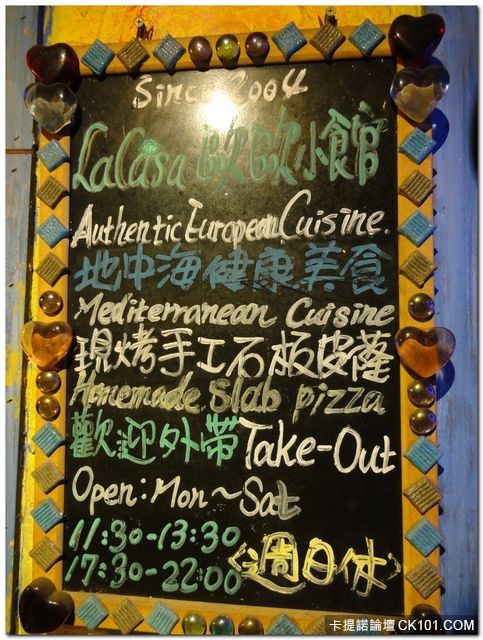 Since 2004
LaCasa 歐歐小館
Authentic European Cuisine.
地中海健康美食
Mediterranean Cuisine
現烤手工石板皮薩
Homemade Slab pizza
歡迎外帶 Take-Out
Open: Mon~Sat
11:30-13:30
17:30-22:00 <週日休>
卡提諾論壇CK101.COM